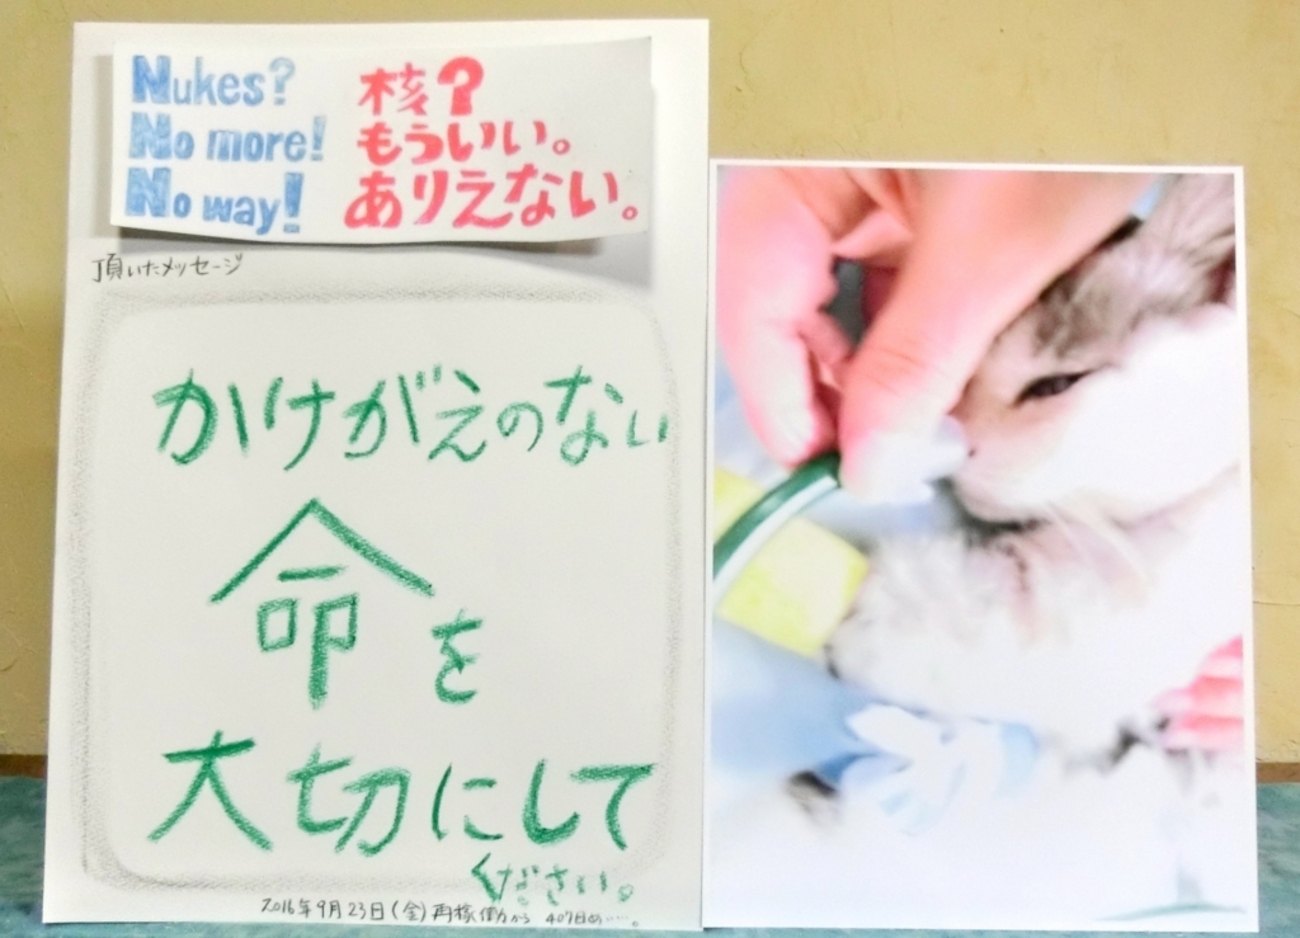 Nukes?
No more!
No way!
核?
もういい。
ありえない。
頂いたメッセージ
かけがえのない
命を
大切にして
ください。
2016年9月23日(金)再稼働から 407日め……。